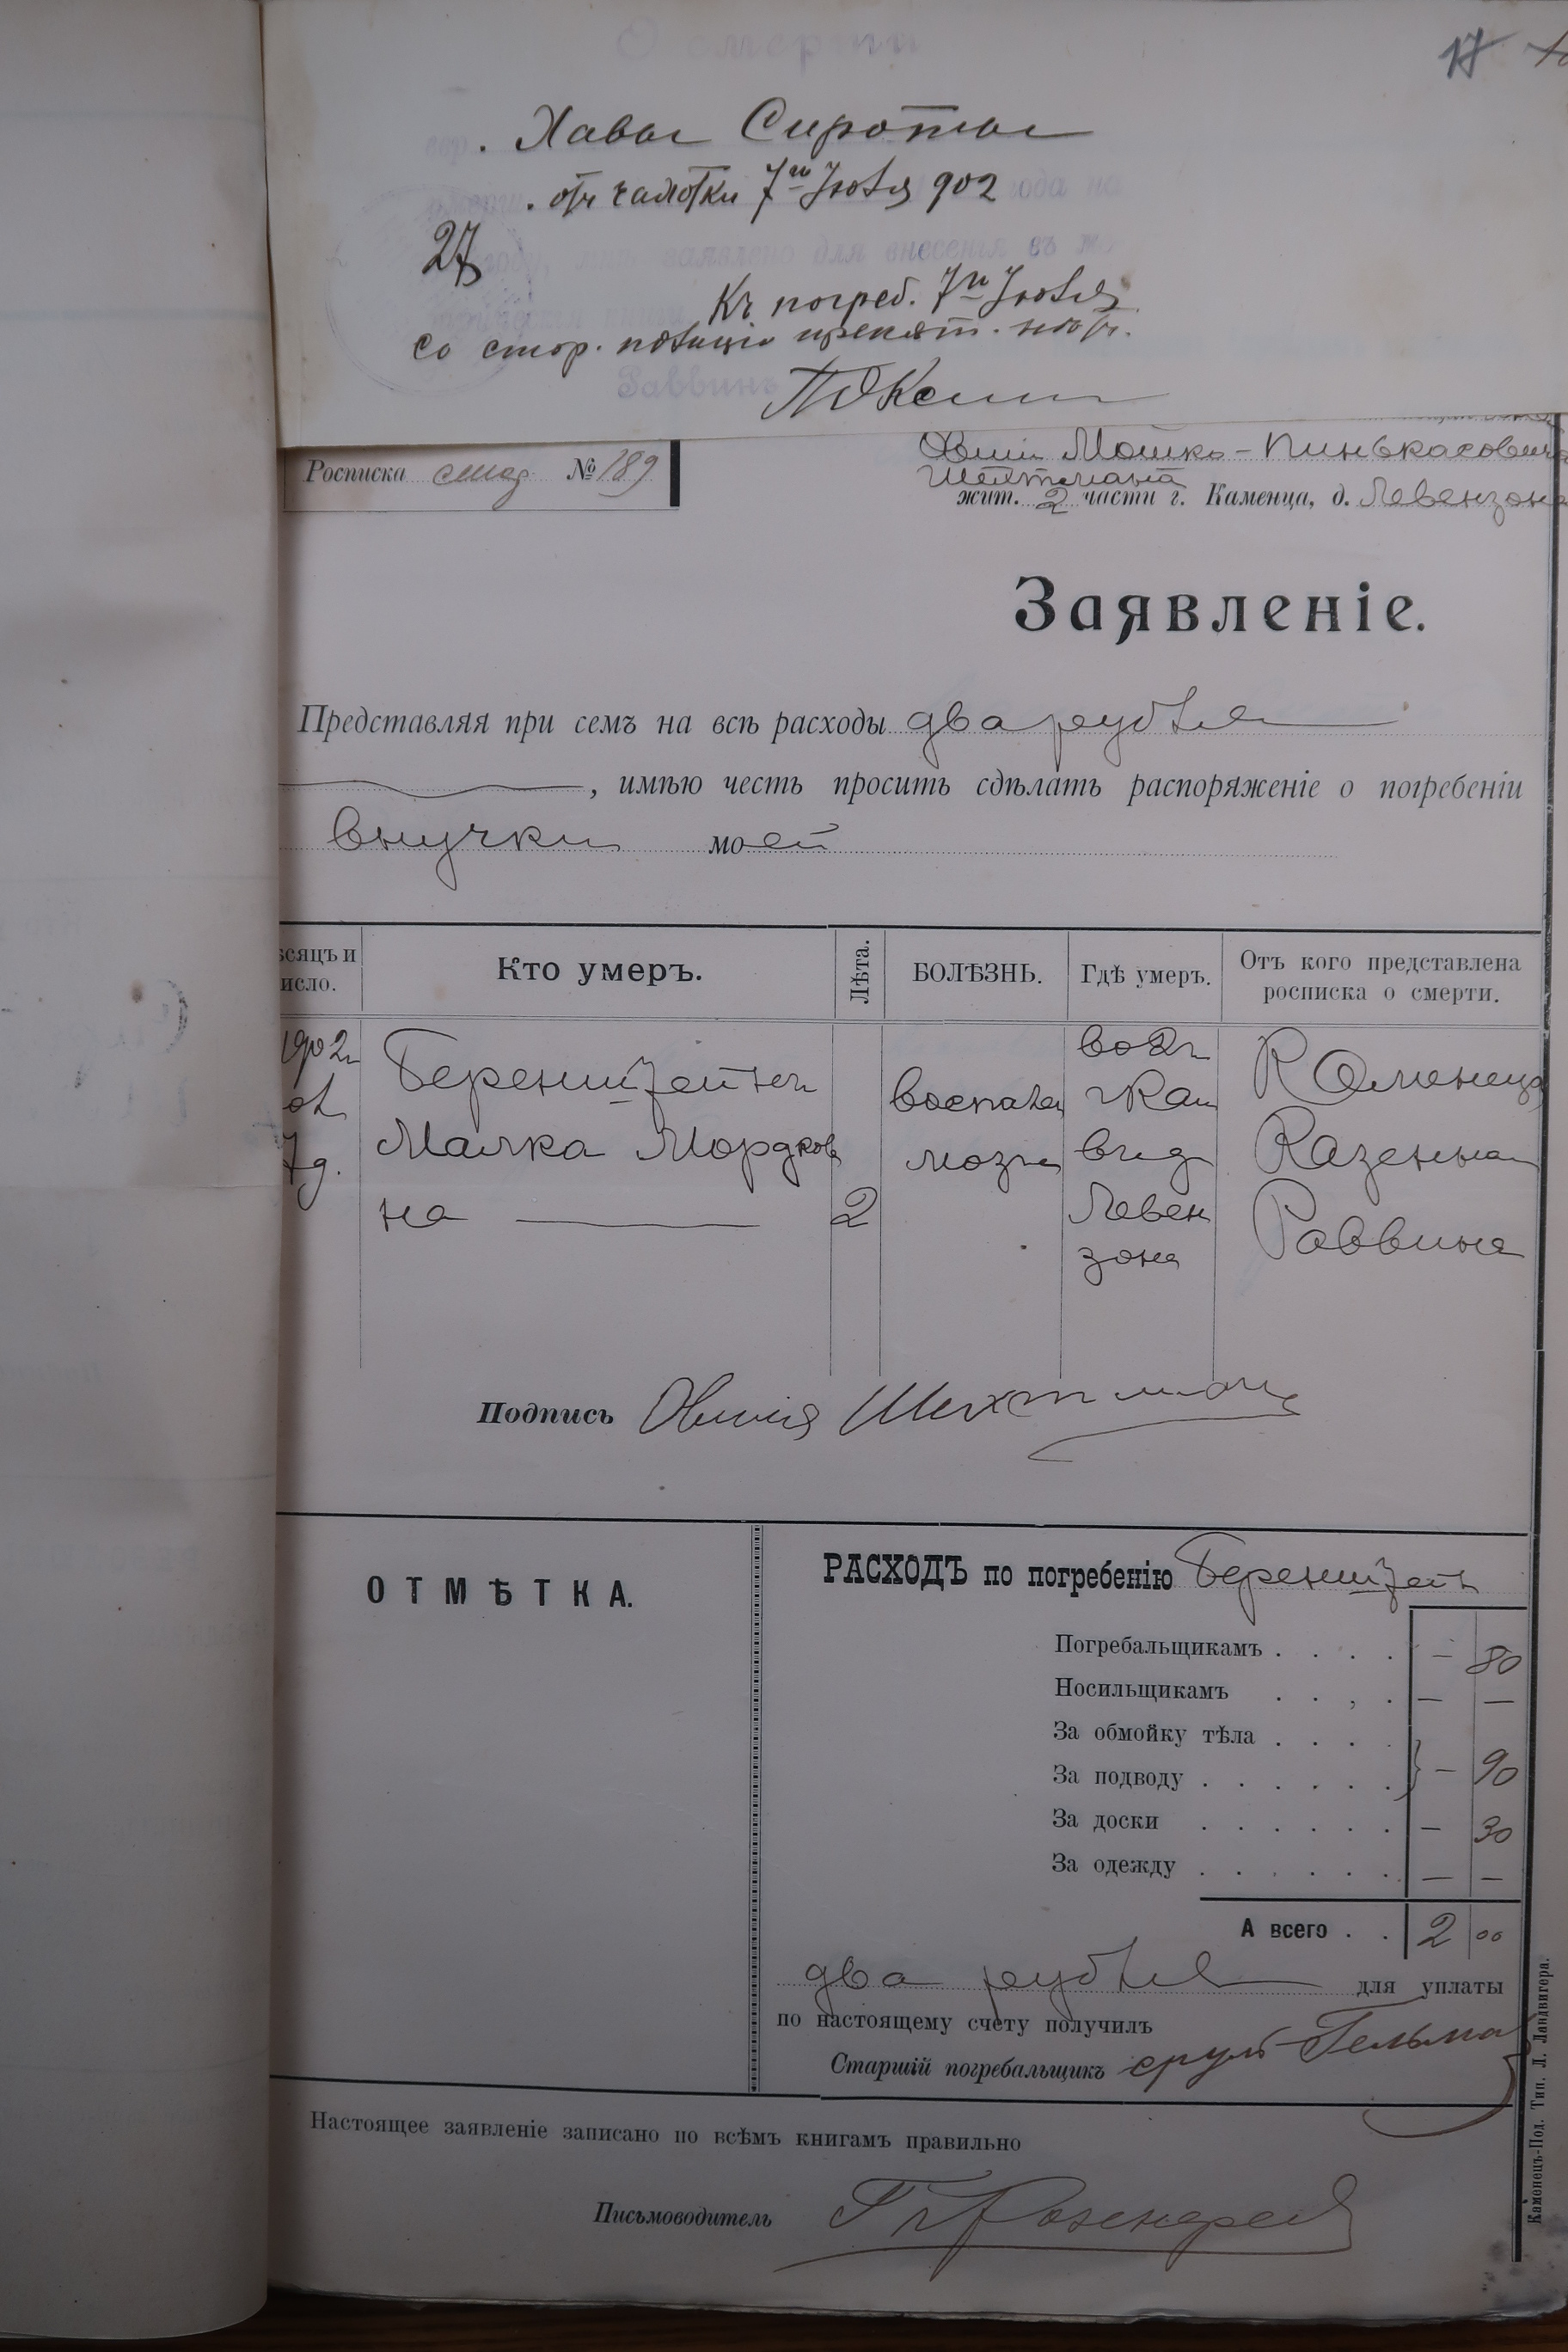 17
Хава Сирота
отъ чахотки 7го Июля 902
27
Къ погреб. 7го Июля
со стор. полиціи препят. нѣтъ.
Раввинъ
Росписка смер № 189
Овши Мошко-Пинькасовича
Шехтмана
жит. 2 части г. Каменца, д. Левензона
Заявленіе.
Представляя при семъ на всѣ расходы два рубля
, имѣю честь просить сдѣлать распоряженіе о погребеніи
внучки моей
ѣсяцъ и исло. Кто умеръ. Лѣта. БОЛѢЗНЬ. Гдѣ умеръ. Отъ кого представлена росписка о смерти.
1902г Беренштейнъ воспален во 2й Каменецъ
7д. Малка Мордков мозга в д Казеннаг
на 2 Левен Раввина
зона
Подпись Овшія Шехтманъ
ОТМѢТКА.
РАСХОДЪ по погребенію Беренштейнъ
Погребальщикамъ . . . . — 80
Носильщикамъ . . , . — —
За обмойку тѣла . . . .
За подводу . . . . . . } — 90
За доски . . . . . . — 30
За одежду . . . . . . — —
А всего . . 2 00
два рубля для уплаты
по настоящему счету получилъ
Старшій погребальщикъ сруль Гельман
Настоящее заявленіе записано по всѣмъ книгамъ правильно
Письмоводитель Розенфел
Каменецъ-Под. Тип. Л. Ландвигера.